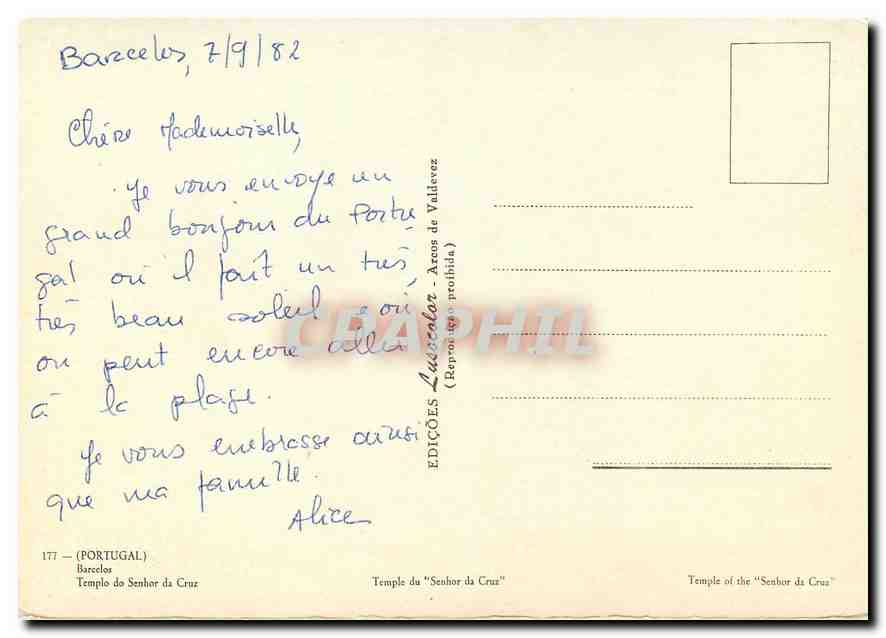 Barcelos, 7/9/82
Chère Mademoiselle,
Je vous envoye un
grand bonjour du Portu
gal où il fait un très,
très beau soleil et où
on peut encore aller
à la plage.
Je vous embrasse ainsi
que ma famille.
Alice
EDIÇÕES Lusocolor - Arcos de Valdevez
(Reprodução proibida)
CPAPHIL
177 — (PORTUGAL)
Barcelos
Templo do Senhor da Cruz
Temple du "Senhor da Cruz"
Temple of the "Senhor da Cruz"